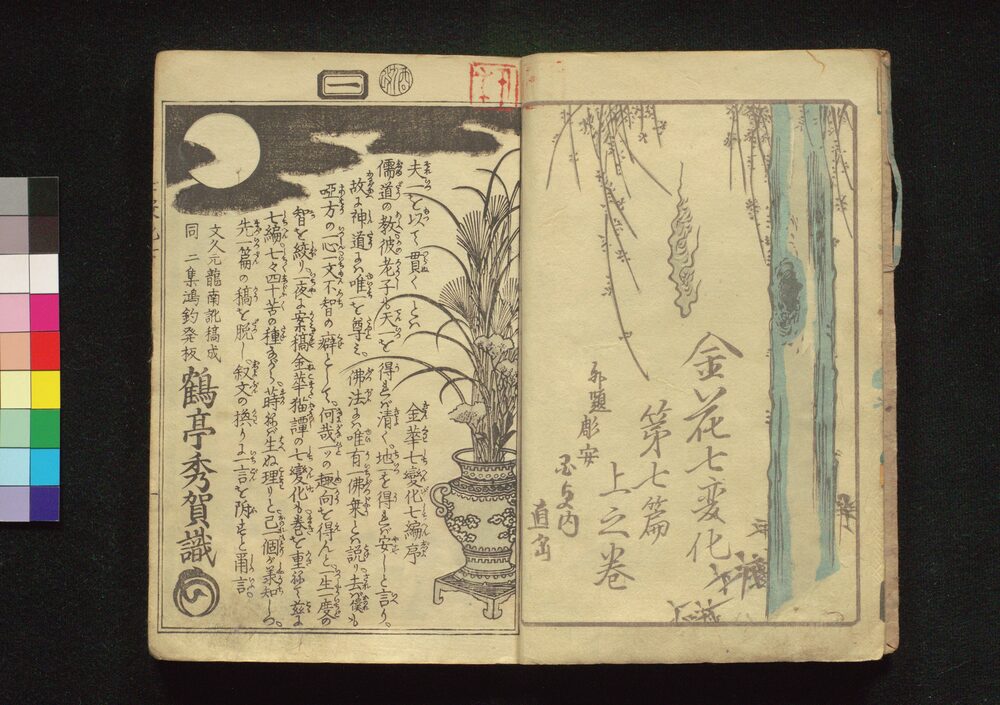 金花七変化
第七篇
上之巻
外題彫安
国貞内
直宗
一
金華七變化七編序
夫一を以て貫くとは
儒道の教彼老子は天一を得れば清く。地一を得れば安しと言り。
故に神道には唯一を尊み。佛法には唯有一佛乗とは説り去ば僕も
唖方の心一文不智の癖として。何哉一ツの趣向を得んと一生一度の
智を絞り一夜に案稿金華猫譚の七變化も巻を重ねて茲に
七編。七々四十苦の種ながら蒔ねば生ぬ理りと己一個が承知しつ。
先一篇の稿を脱し。叙文の換りに一言を附すと爾言
文久元龍南訛稿成
同 二集鴻釣発板
鶴亭秀賀識